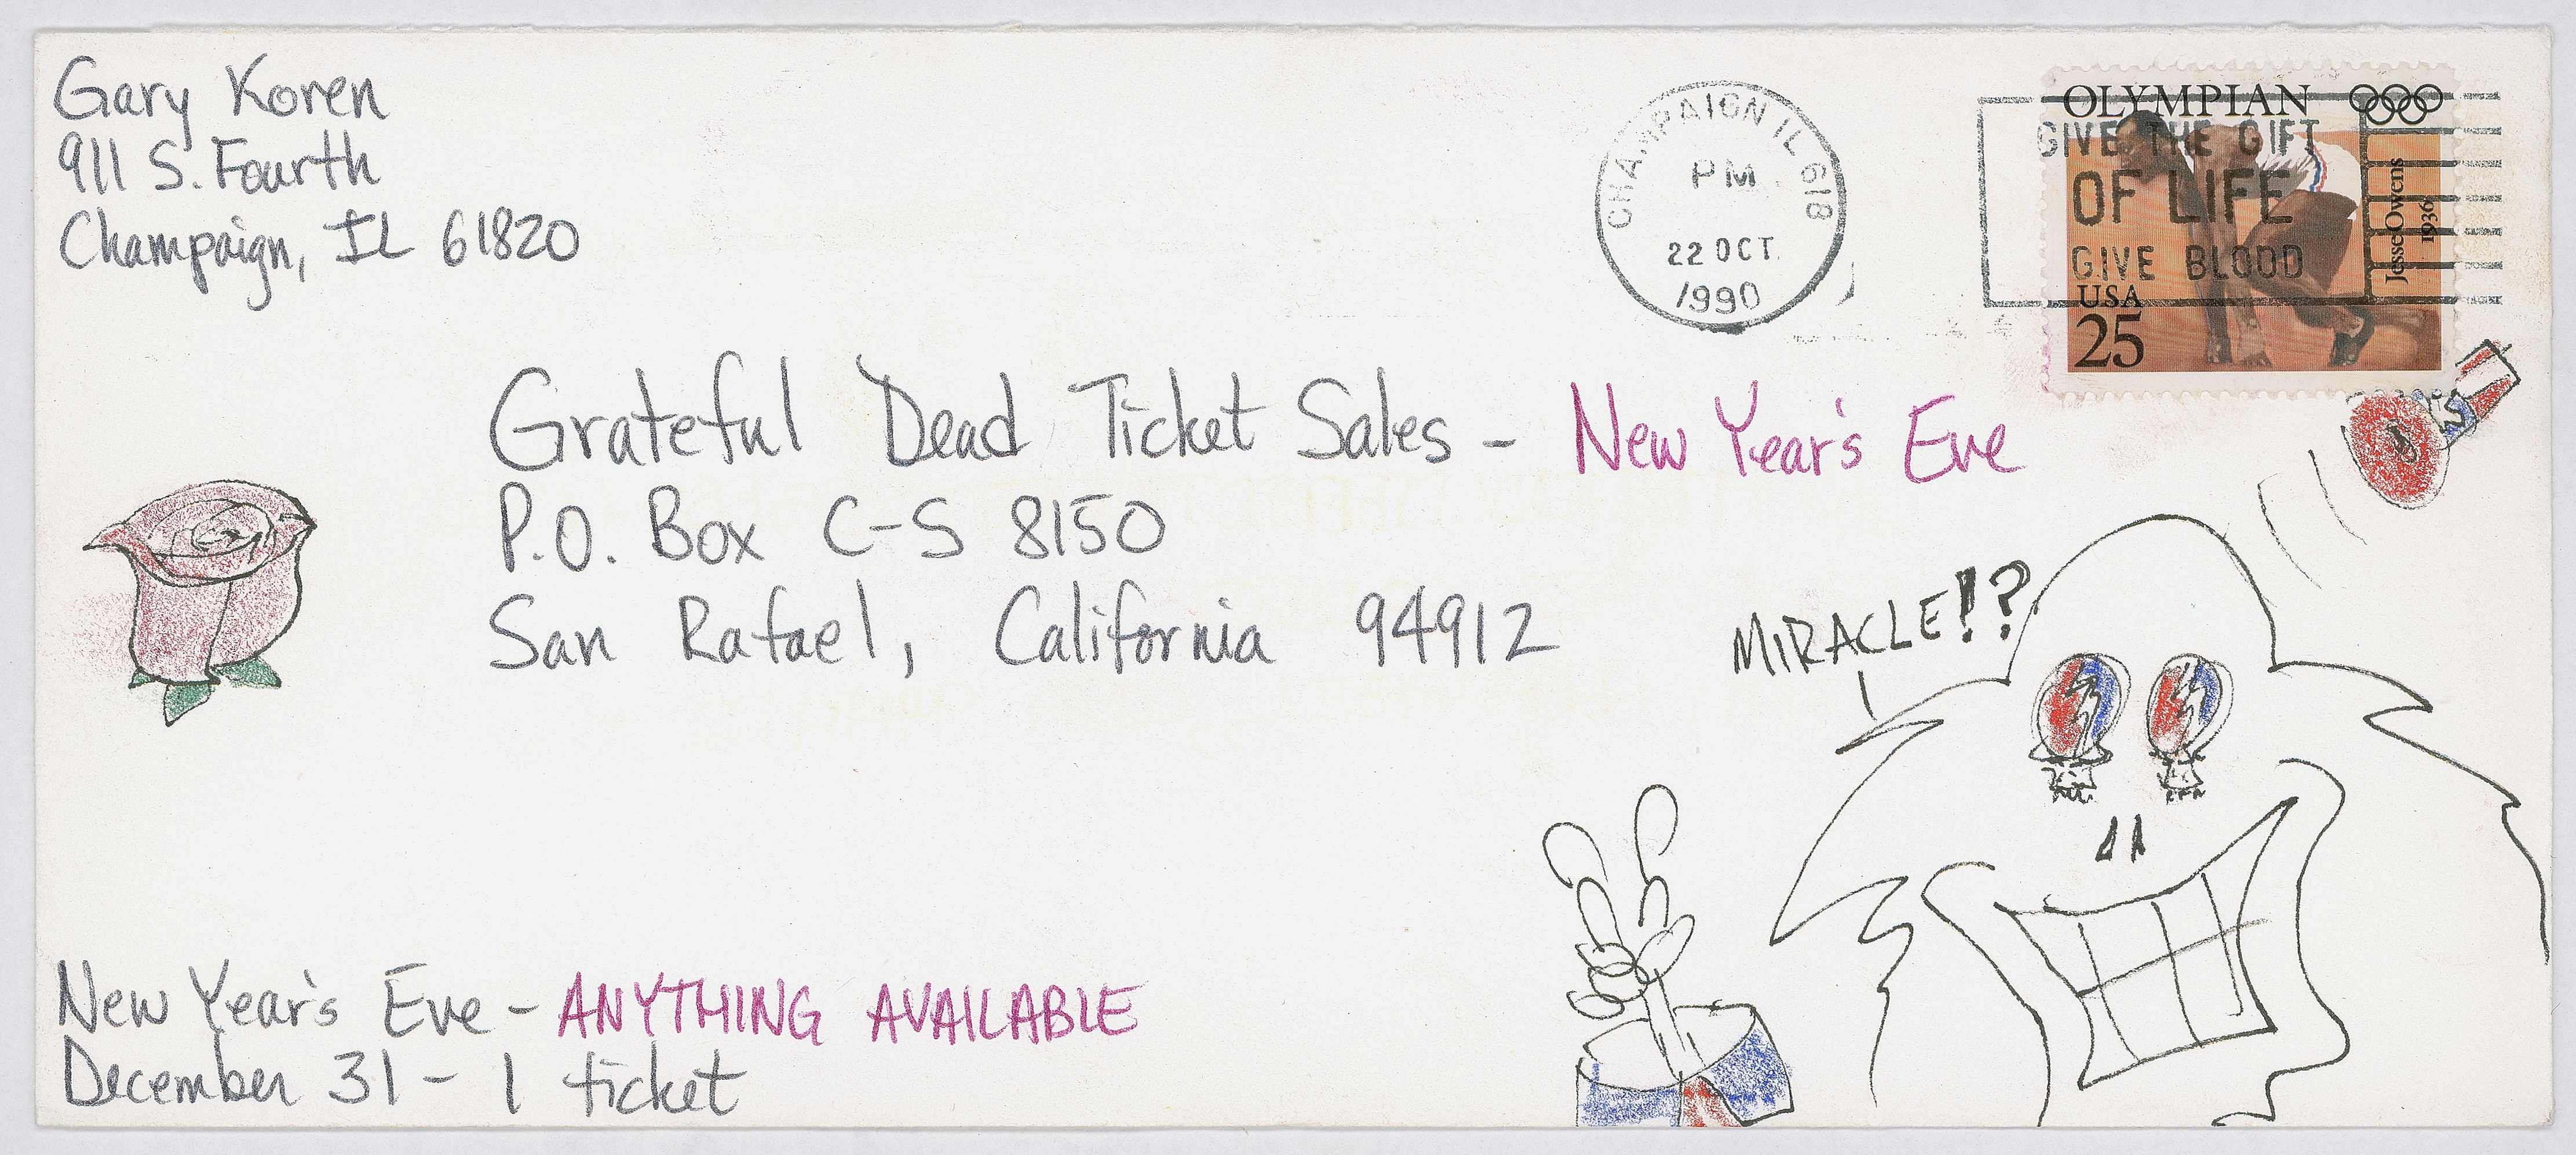 Gary Koren
911 S. Fourth
Champaign, IL 61820
CHAMPAIGN IL 618
PM
22 OCT
1990
OLYMPIAN
GIVE THE GIFT
OF LIFE
GIVE BLOOD
Jesse Owens
1936
USA
25
Grateful Dead Ticket Sales - New Year's Eve
P.O. Box C-S 8150
San Rafael, California 94912
MIRACLE!?
New Year's Eve - ANYTHING AVAILABLE
December 31 - 1 ticket